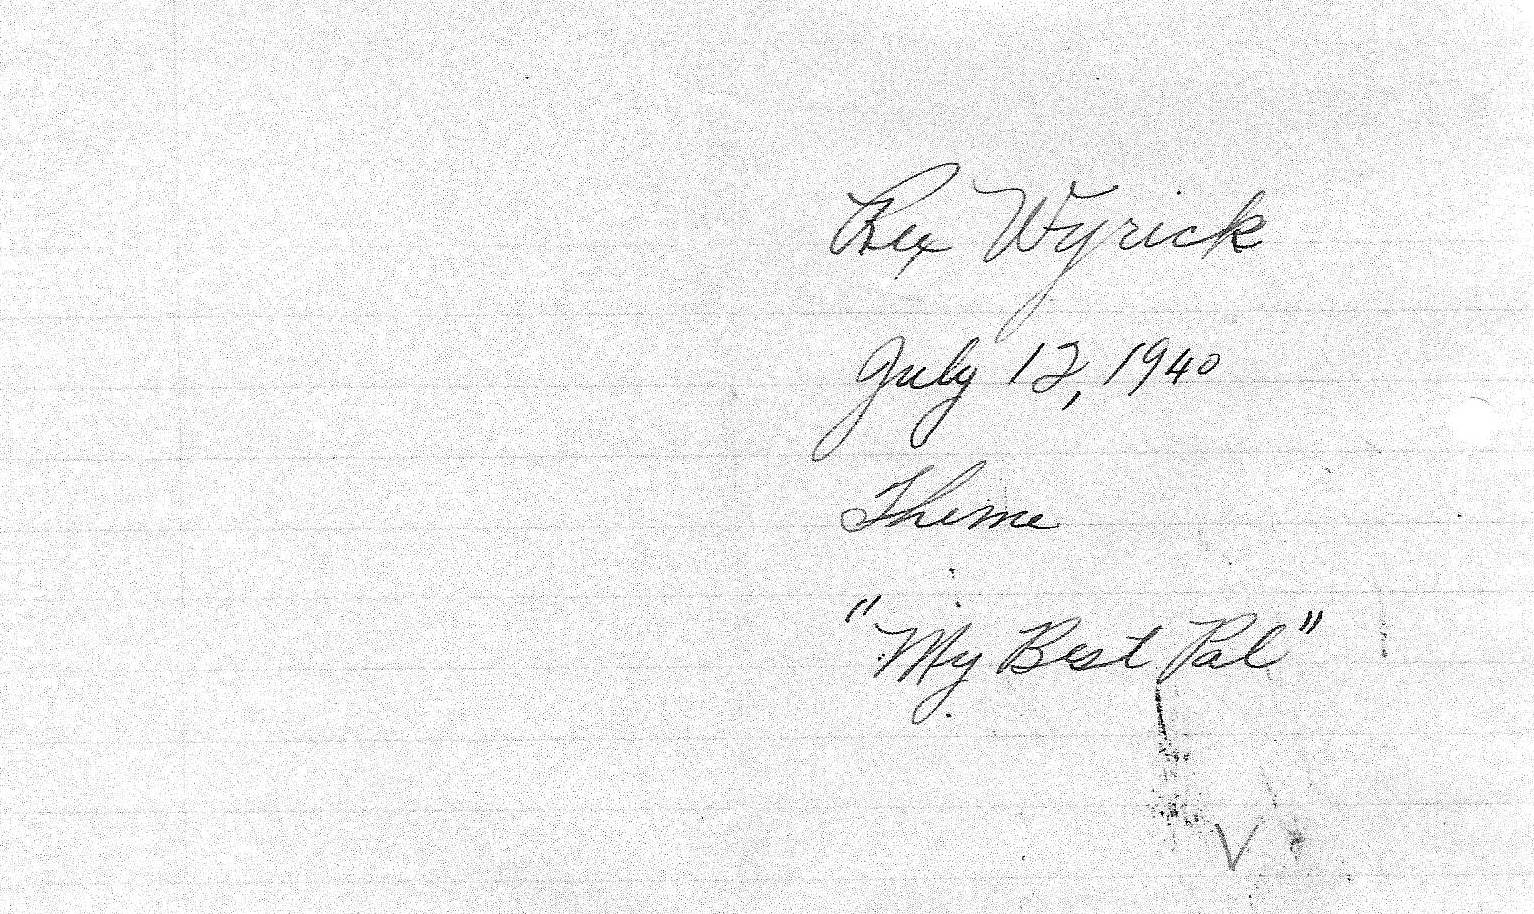 Rex Wyrick
July 12, 1940
Theme
"My Best Pal"